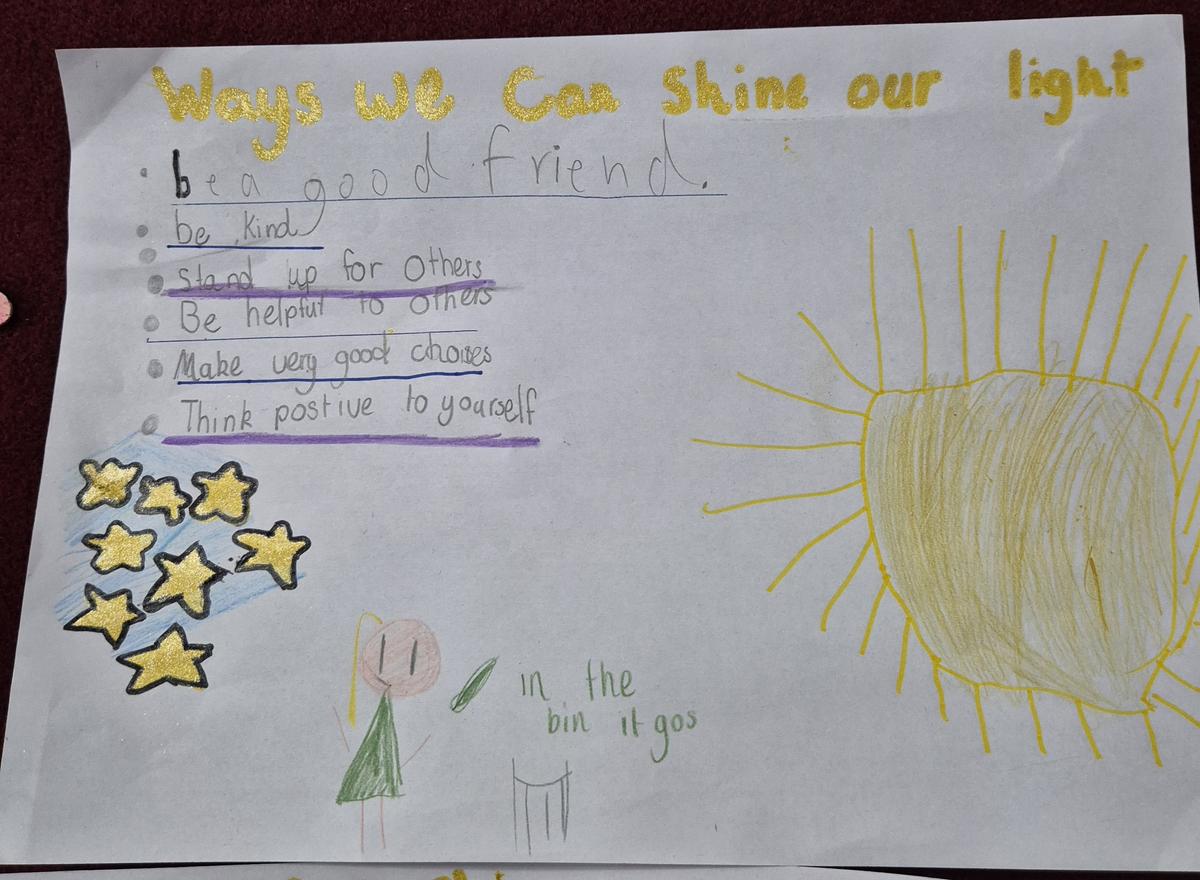 Ways we Can Shine our light :
• be a good friend.
• be kind
• Stand up for Others
• Be helpful to Others
• Make very good choises
• Think postive to yourself
in the
bin it gos